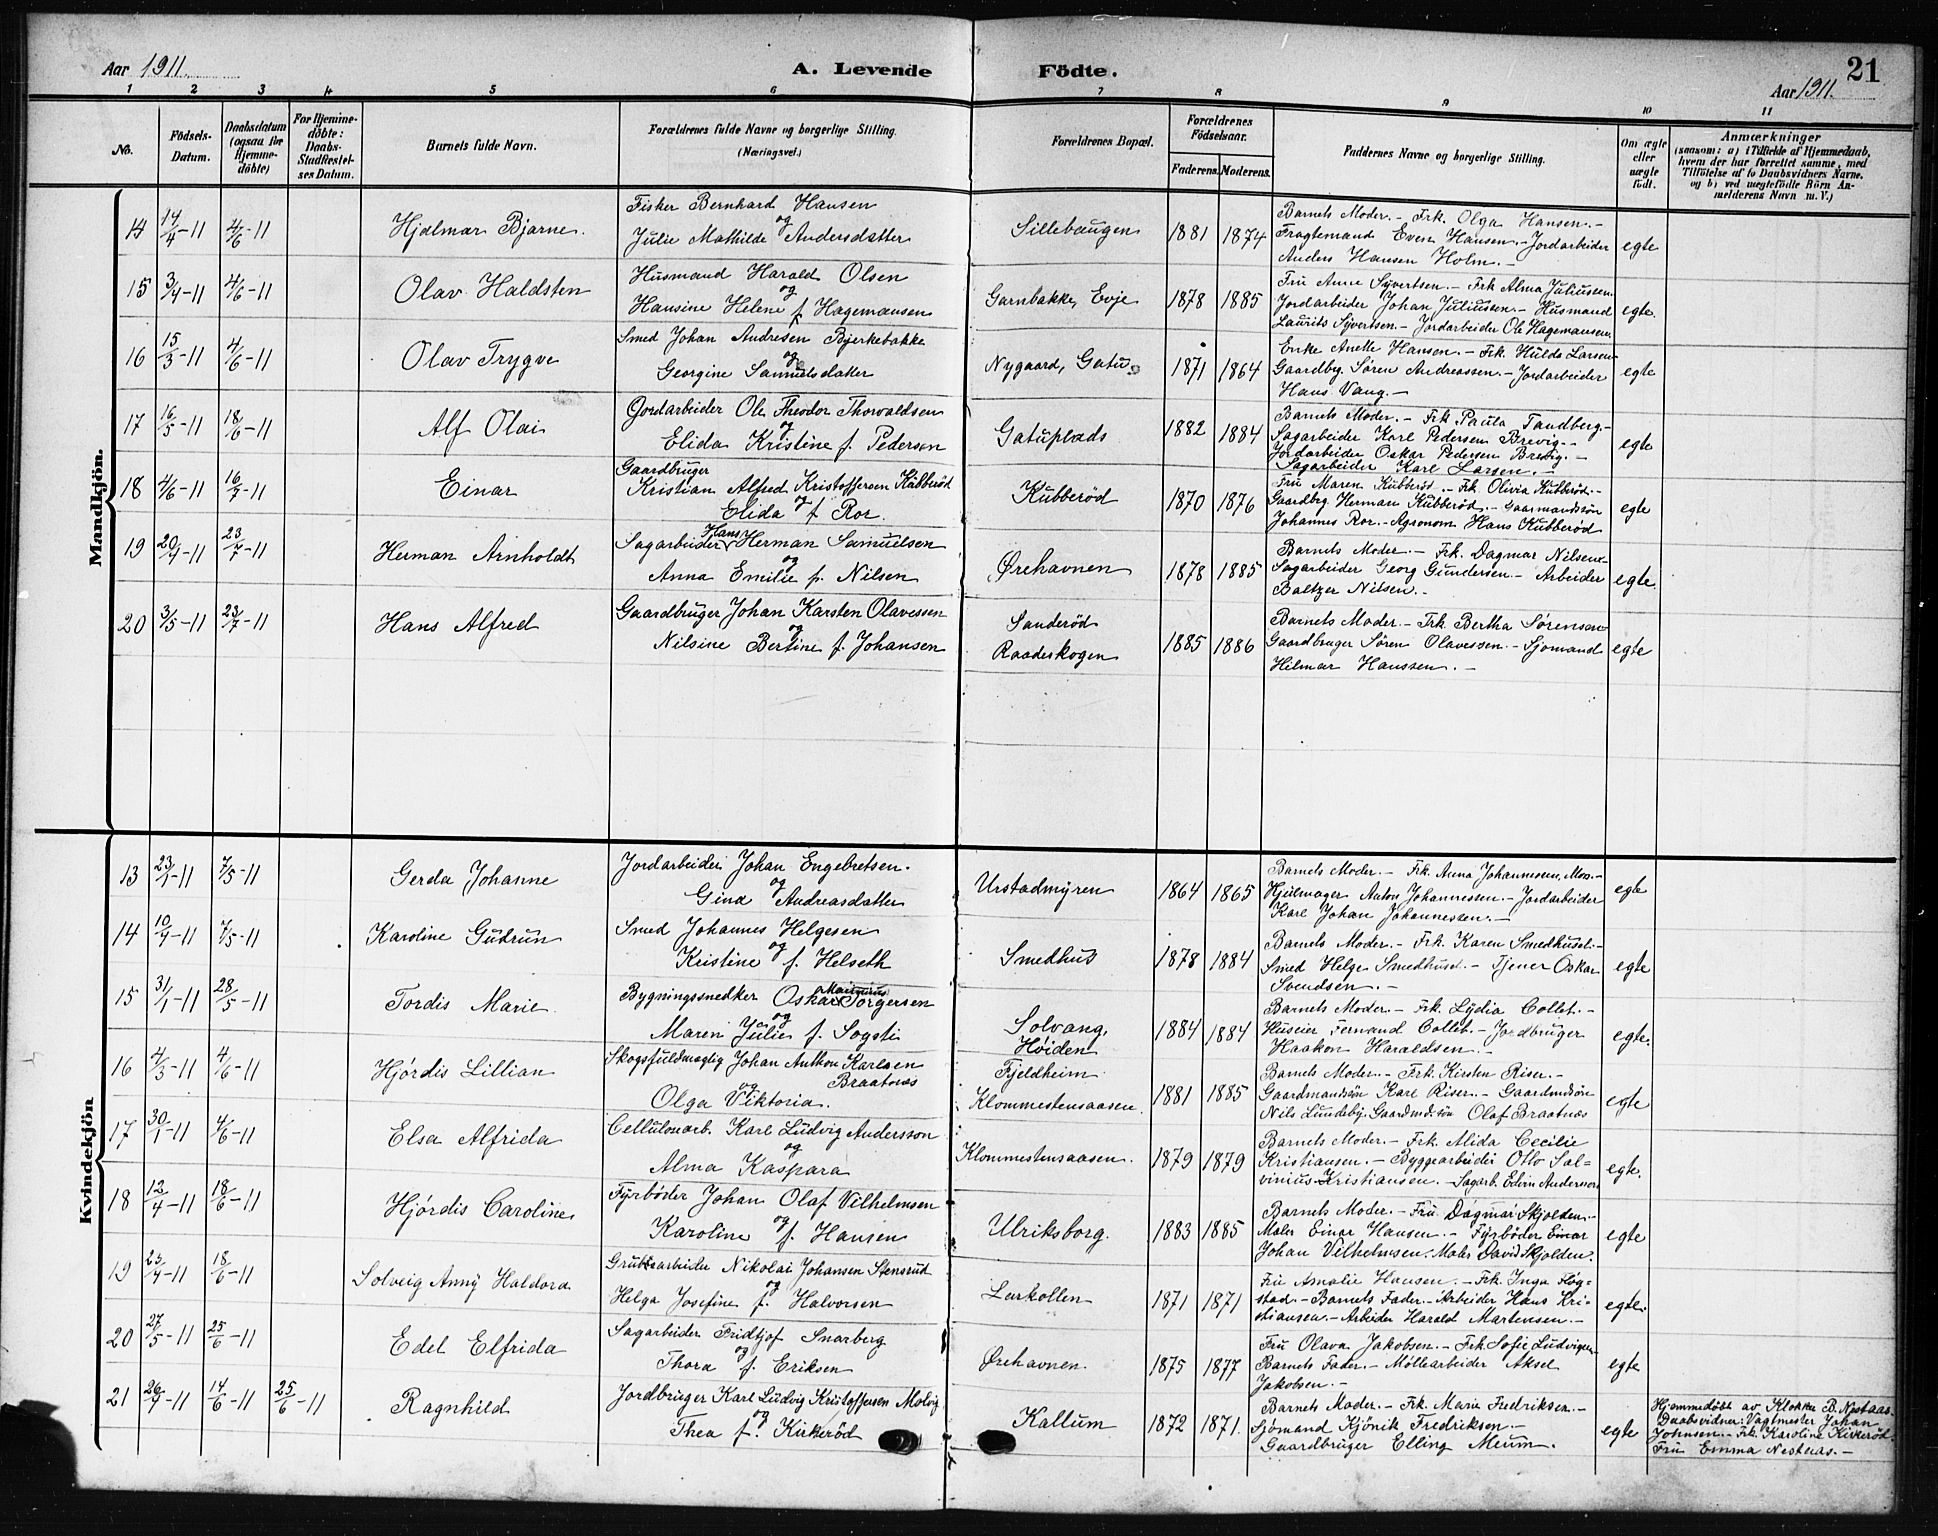 Aar 1911. A. Levende Födte. 21
Aar 1911.
1 2 3 4 5 6 7 8 9 10 11
No.
Födsels-Datum.
Daabsdatum (ogsaa for Hjemmedöbte)
For Hjemmedöbte: Daabs-Stadfæstelses Datum.
Barnets fulde Navn.
Forældrenes fulde Navne og borgerlige Stilling.
(Næringsvei.)
Forældrenes Bopæl.
Forældrenes Födselsaar.
Faderens. Moderens.
Faddernes Navne og borgerlige Stilling.
Om ægte eller uægte födt.
Anmærkninger
(saasom: a) i Tilfælde af Hjemmedaab, hvem der har forrettet samme, med Tilföielse af to Daabsvidners Navne, og b) ved uægtefödte Börn Anmelderens Navn m. V.)
Mandkjön.
14 14/4-11 4/6-11 Hjalmar Bjarne.
Fisker Bernhard Hansen
og
Julie Mathilde Andersdatter
Sillebaugen 1881 1874
Barnets Moder.- Frk. Olga Hansen.-
Fragtemand Even Hansen.- Jordarbeider
Anders Hansen Holm.-
egte
15 3/4-11 4/6-11 Olav Haldsten
Husmand Harald Olsen
og
Hansine Helene f. Hagemansen
Garnbakke, Evje 1878 1885
Fru Anne Syvertsen.- Frk Alma Juliussen
Jordarbeider Johan Juliussen.- Husmand
Laurits Syvertsen.- Jordarbeider Ole Hagemansen
egte.
16 15/3-11 4/6-11 Olav Trygve
Smed Johan Andresen Bjerkebakke
og
Georgine Samuelsdatter
Nygaard, Gatu 1871 1864
Enke Anette Hansen.- Frk. Hulda Larsen
Gaardbg. Sören Andreassen.- Jordarbeider
Hans Vang.-
egte
17 16/5-11 18/6-11 Alf Olai
Jordarbeider Ole Theodor Thorvaldsen
og
Elida Kristine f. Pedersen
Gatuplads 1882 1884
Barnets Moder.- Frk. Paula Tandberg.-
Sagarbeider Karl Pedersen Brevig.-
Jordarbeider Oskar Pedersen Brevig.-
Sagarbeider Karl Larsen.-
egte
18 4/6-11 16/7-11 Einar
Gaardbruger
Kristian Alfred Kristoffersen Kubberöd
og
Elida f. Ror.
Kubberöd 1870 1876
Fru Maren Kubberöd.- Frk. Olivia Kubberöd.-
Gaardbrg Herman Kubberöd.- Gaarmandsön
Johannes Ror.- Agronom Hans Kubberöd
egte
19 20/4-11 23/7-11 Herman Arnholdt
Hans
Sagarbeider Herman Samuelsen
og
Anna Emilie f. Nilsen
Ørehavnen 1878 1885
Barnets Moder.- Frk. Dagmar Nilsen
Sagarbeider Georg Gundersen.- Arbeider
Baltzer Nilsen.-
egte.
20 3/5-11 23/7-11 Hans Alfred
Gaardbruger Johan Karsten Olavessen
og
Nilsine Bertine f. Johansen
Sanderöd
Raaderskogen 1885 1886
Barnets Moder.- Frk. Bertha Sörensen
Gaardbruger Sören Olavessen.- Sjomand
Hilmar Hanssen.-
egte
Kvindekjön
13 23/1-11 7/5-11 Gerda Johanne
Jordarbeider Johan Engebretsen.
og
Gina Andreasdatter
Urstadmyren 1864 1865
Barnets Moder.- Frk. Anna Johannesen, Mos.-
Hjulmager Anton Johannessen.- Jordarbeider
Karl Johan Johannessen.-
egte
14 10/4-11 7/5-11 Karoline Gudrun
Smed Johannes Helgesen
og
Kristine f. Helseth
Smedhus 1878 1884
Barnets Moder.- Frk. Karen Smedhuset.-
Smed Helge Smedhuset.- Tjener Oskar
Svendsen.-
egte
15 31/1-11 28/5-11 Tordis Marie
Bygningssnedker Oskar Torgersen
og
Maren Julie f. Sogsti
Solvang,
Høiden 1884 1884
Barnets Moder.- Frk. Lydia Collet.-
Huseier Fernand Collet.- Jordbruger
Haakon Haraldsen.-
egte.
16 4/3-11 4/6-11 Hjördis Lillian
Skogsfuldmægtig Johan Anthon Karlsen
Braatnæs
og
Olga Viktoria.
Fjeldheim
Klommestensaasen. 1881 1885
Barnets Moder.- Frk. Kirsten Riser.-
Gaardmandsön Karl Riser.- Gaardmdsön
Nils Lundeby. Gaardmdsön Olaf Braatnæs
egte
17 30/1-11 4/6-11 Elsa Alfrida
Cellulosarb. Karl Ludvig Andersson
og
Alma Kaspara
Klommestensaasen. 1879 1879
Barnets Moder.- Frk. Alida Cecilie
Kristiansen.- Byggearbeider Otto Sal=
vinius Kristiansen.- Sagarb. Edvin Anderson
egte.
18 12/4-11 18/6-11 Hjördis Caroline
Fyrböder Johan Olaf Vilhelmsen
og
Karoline f. Hansen
Ulriksborg. 1883 1885
Barnets Moder.- Fru Dagmar Skjolden.-
Maler Einar Hansen.- Fyrböder Einar
Johan Vilhelmsen. Maler David Skjolden.
egte
19 23/4-11 18/6-11 Solveig Anny Haldora
Grubearbeider Nikolai Johansen Stensrud
og
Helga Josefine f. Halvorsen
Larkollen 1871 1871
Fru Amalie Hansen.- Frk. Inga Høg=
stad.- Barnets Fader.- Arbeider Hans Kri=
stiansen.- Arbeider Harald Martensen.-
egte.
20 27/5-11 25/6-11 Edel Elfrida
Sagarbeider Fridtjof Snarberg
og
Thora f. Eriksen
Ørehavnen. 1875 1877
Fru Olava Jakobsen.- Frk. Sofie Ludvigsen
Barnets Fader.- Möllearbeider Aksel
Jakobsen.-
egte
21 26/4-11 14/6-11 25/6-11 Ragnhild
Jordbruger Karl Ludvig Kristoffersen Molvig
og
Thea f. Kirkeröd
Kallum 1872 1871.
Barnets Moder.- Frk. Marie Fredriksen.-
Sjömand Kjönik Fredriksen.-
Gaardbruger Elling Meum.
egte
Hjemmedöbt av Klokker B. Nestaas.
Daabsvidner: Vagtmester Johan
Johnsen.- Frk. Karoline Kirkeröd.
Fru Emma Nestaas.-